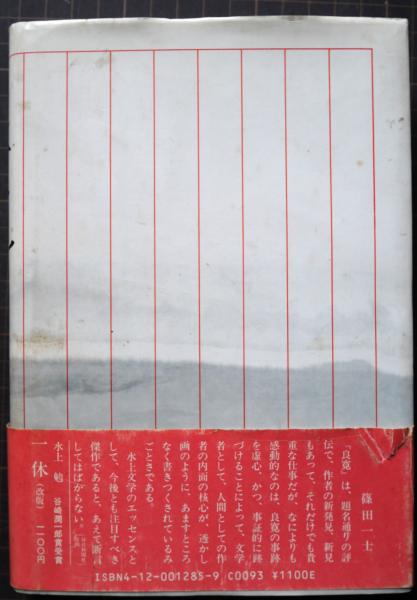 篠田一士
「良寛」は、題名通りの評
伝で、作者の新発見、新見
もあって、それだけでも貴
重な仕事だが、なによりも
感動的なのは、良寛の事跡
を虚心、かつ、事証的に跡
づけることによって、文学
者として、人間としての作
者の内面の核心が、透かし
画のように、あますところ
なく書きつくされているみ
ごとさである。
水上文学のエッセンスと
して、今後とも注目すべき
傑作であると、あえて断言
してはばからない。
一休(改版) 一一〇〇円
水上 勉 谷崎潤一郎賞受賞
ISBN4-12-001285-9 C0093 ¥1100E